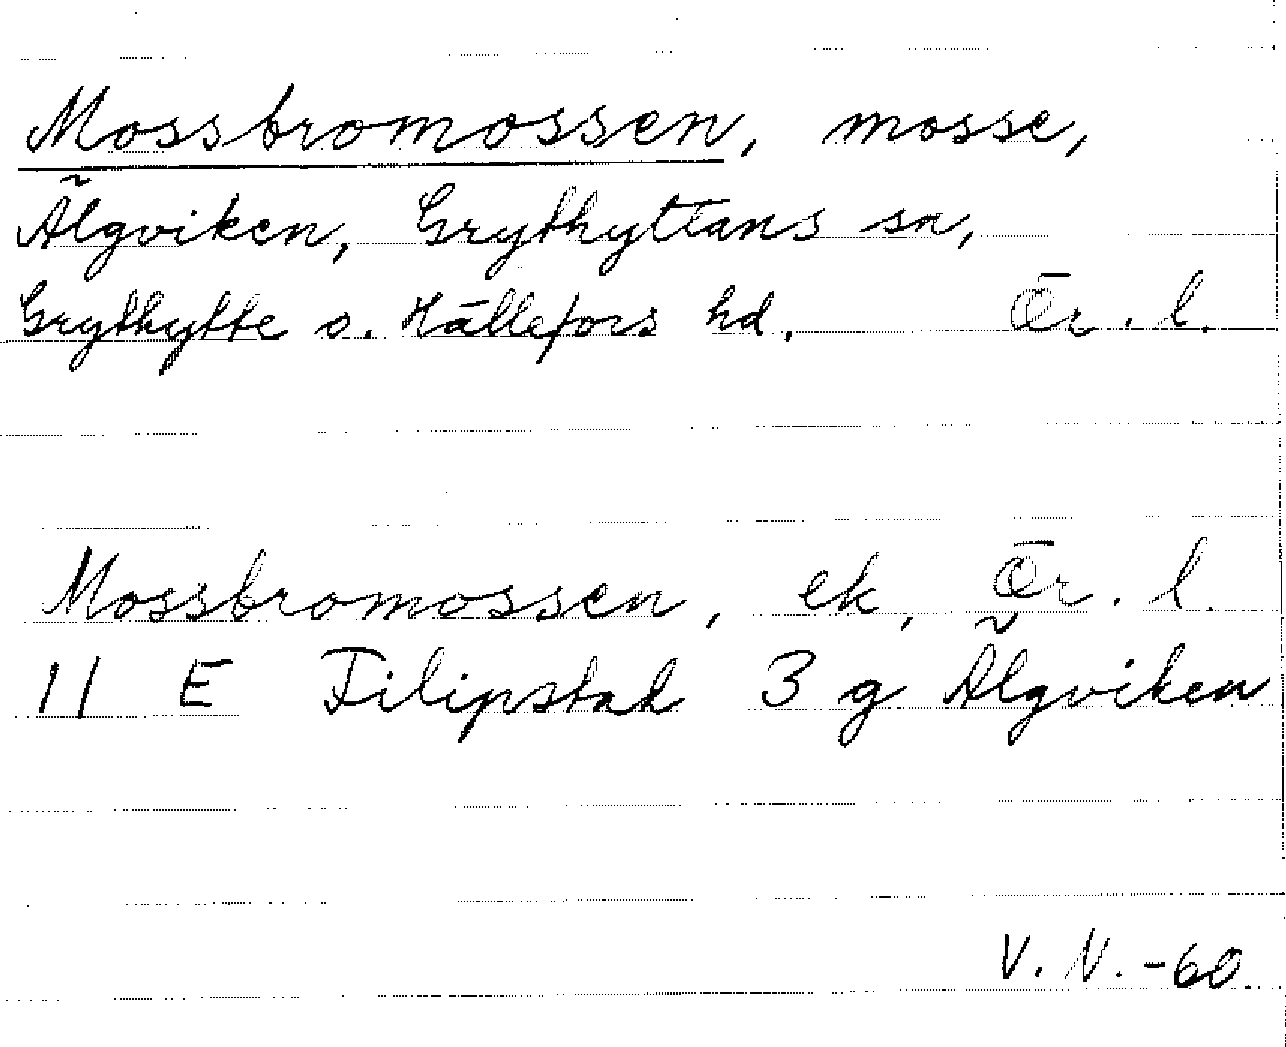 Mossbromossen, mosse,
Älgviken, Grythyttans sn,
Grythytte o. Hällefors hd, Ör. l.
Mossbromossen, ek, Ör. l.
11 E Filipstad 3 g Älgviken
V. N. -60.